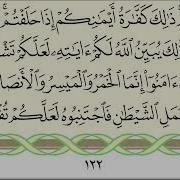 ذَٰلِكَ كَفَّٰرَةُ أَيْمَٰنِكُمْ إِذَا حَلَفْتُمْ ۚ
لِكَ يُبَيِّنُ ٱللَّهُ لَكُمْ ءَايَٰتِهِۦ لَعَلَّكُمْ
ءَامَنُوٓا۟ إِنَّمَا ٱلْخَمْرُ وَٱلْمَيْسِرُ وَٱلْأَنصَا
مَلِ ٱلشَّيْطَٰنِ فَٱجْتَنِبُوهُ لَعَلَّكُمْ
١٢٢